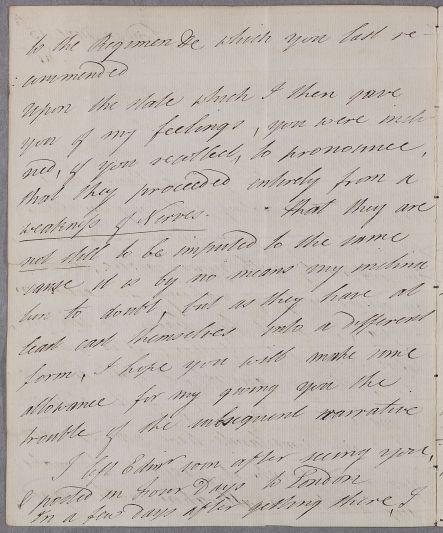 to the Regimen &c which you last re-
:commended
Upon the state which I then gave
you of my feelings, you were incli-
ned, if you recollect, to pronounce,
that they proceeded entirely from a
weakness of Nerves. - That they are
not still to be imputed to the same
cause it is by no means my inclina
tion to doubt, but as they have at
least cast themselves into a different
form, I hope you will make some
allowance for my giving you the
trouble of the subsequent narrative
I left Edinr soon after seeing you,
& posted in four Days to London
In a few days after getting there, I